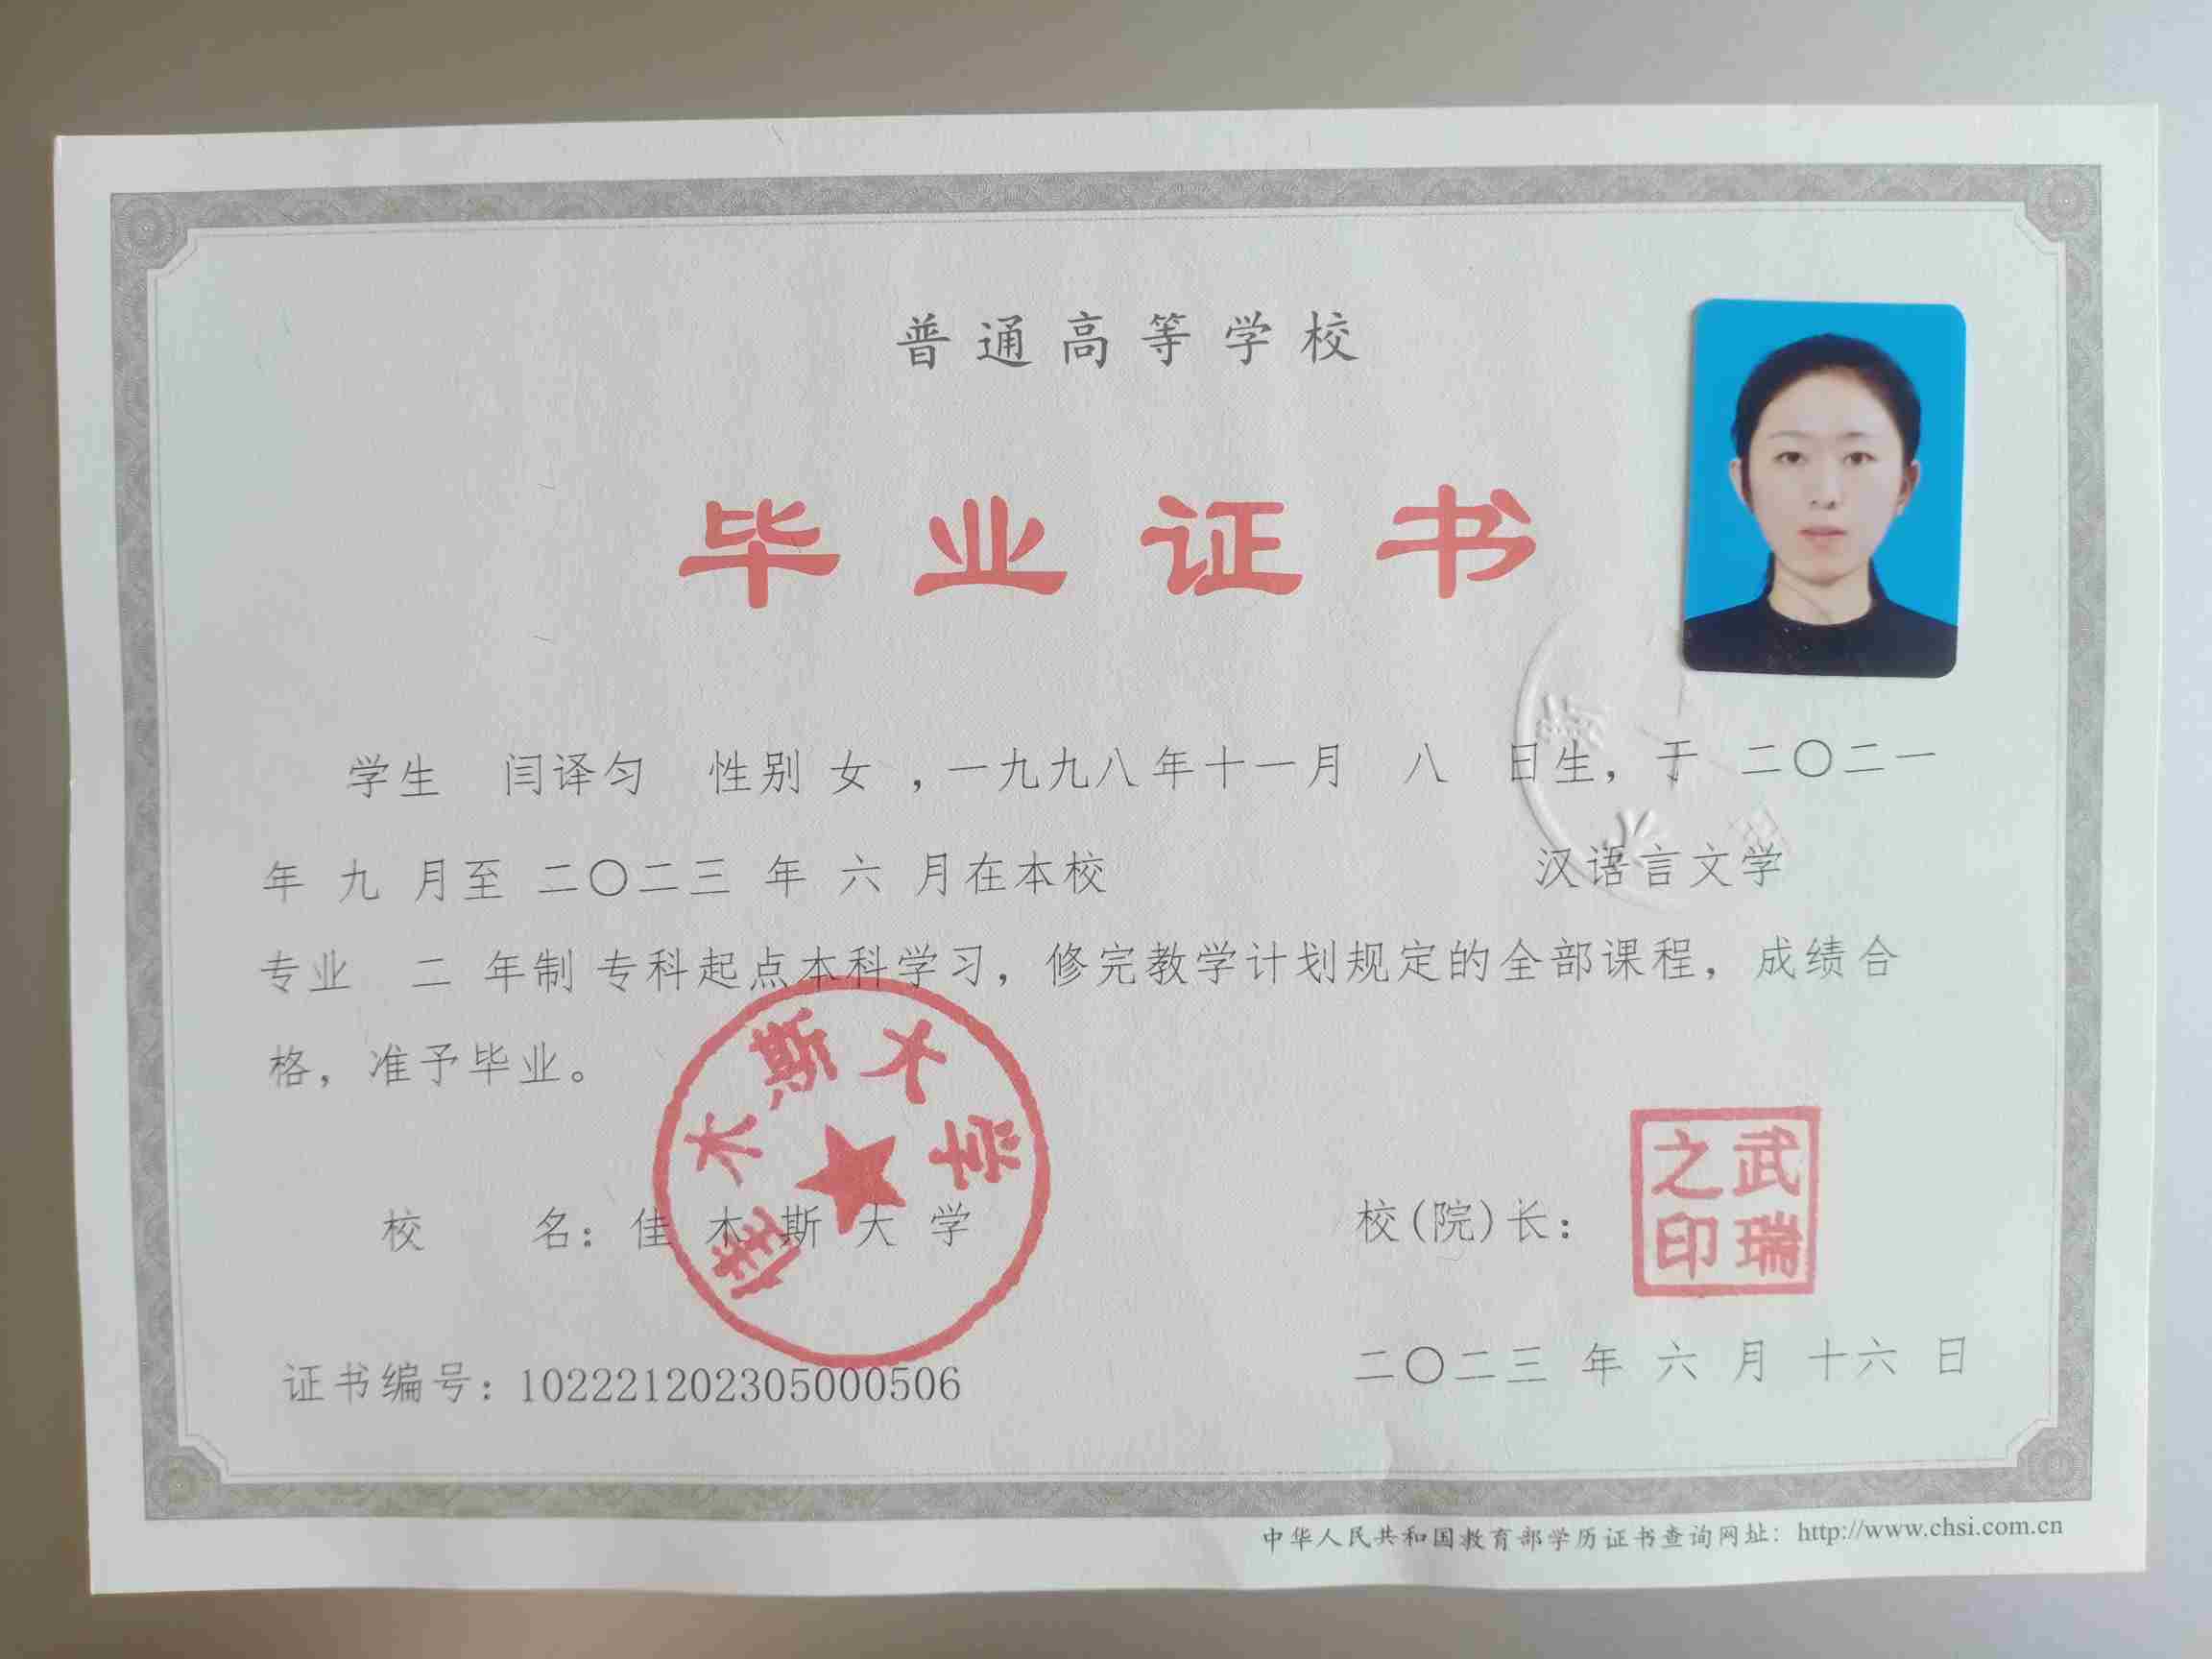 普通高等学校
毕业证书
学生 闫译匀 性别 女 ，一九九八年十一月 八 日生，于 二〇二一
年 九 月至 二〇二三 年 六 月在本校 汉语言文学
专业 二 年制 专科起点本科学习，修完教学计划规定的全部课程，成绩合
格，准予毕业。
佳木斯大学
校 名：佳木斯大学
校(院)长：
武瑞之印
证书编号：102221202305000506
二〇二三 年 六 月 十六 日
中华人民共和国教育部学历证书查询网址：http://www.chsi.com.cn